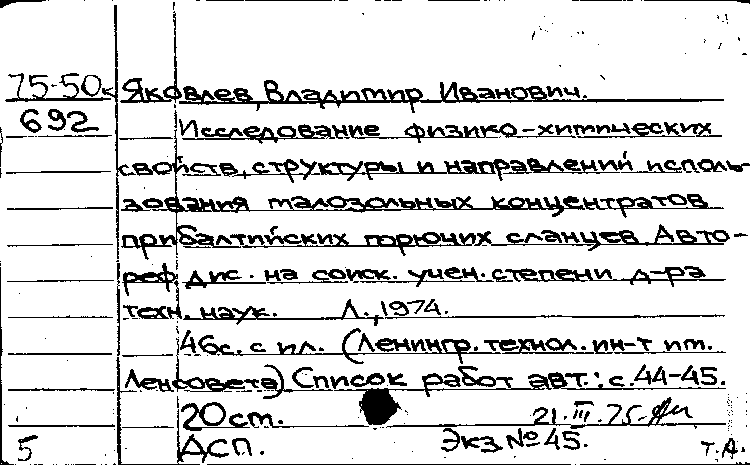 75-50к Яковлев, Владимир Иванович.
692 Исследование физико-химических
свойств, структуры и направлений исполь-
зования малозольных концентратов
прибалтийских горючих сланцев. Авто-
реф. дис. на соиск. учен. степени д-ра
техн. наук. Л., 1974.
46с. с ил. (Ленингр. технол. ин-т им.
Ленсовета) Список работ авт.: с. 44-45.
20см. 21.III.75.
5 ДСП. Экз № 45. Т.А.